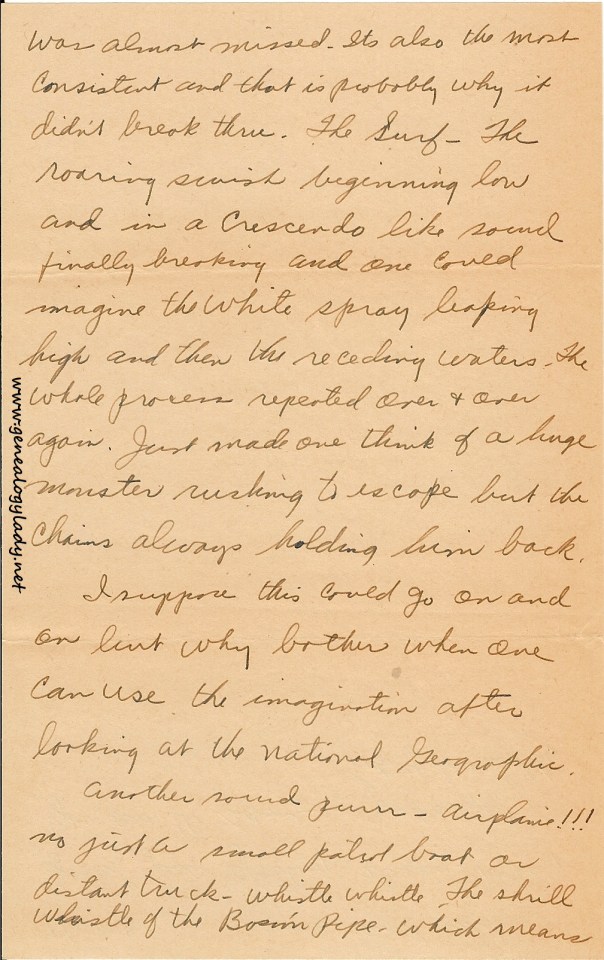 was almost missed. Its also the most
consistent and that is probably why it
didn't break thru. The Surf - The
roaring swish beginning low
and in a Crescendo like sound
finally breaking and one could
imagine the white spray leaping
high and then the receding waters. The
whole process repeated over & over
again. Just made one think of a huge
monster rushing to escape but the
chains always holding him back.
I suppose this could go on and
on but why bother when one
can use the imagination after
looking at the national Geographic.
Another sound purrr - airplane!!!
no just a small patrol boat or
distant truck - whistle whistle The shrill
whistle of the Bosi'n Pipe - which means
www.genealogylady.net